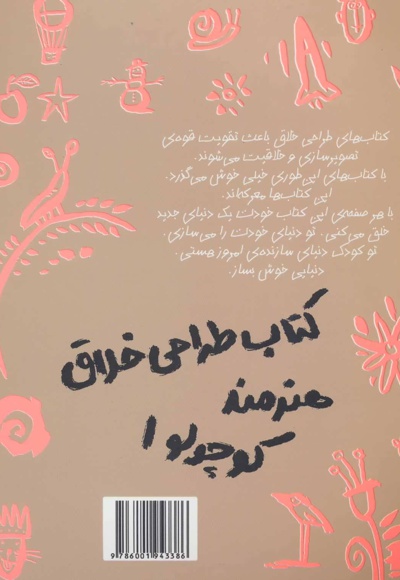 کتاب‌های طراحی خلاق باعث تقویت قوه‌ی
تصویرسازی و خلاقیت می‌شوند.
با کتاب‌های این‌طوری خیلی خوش می‌گذرد.
این کتاب‌ها معرکه‌اند.
با هر صفحه‌ی این کتاب خودت یک دنیای جدید
خلق می‌کنی. تو دنیای خودت را می‌سازی.
تو کودک دنیای سازنده‌ی امروز هستی.
دنیایی خوش بساز.
کتاب طراحی خلاق
هنرمند
کوچولو ۱
9786001943386